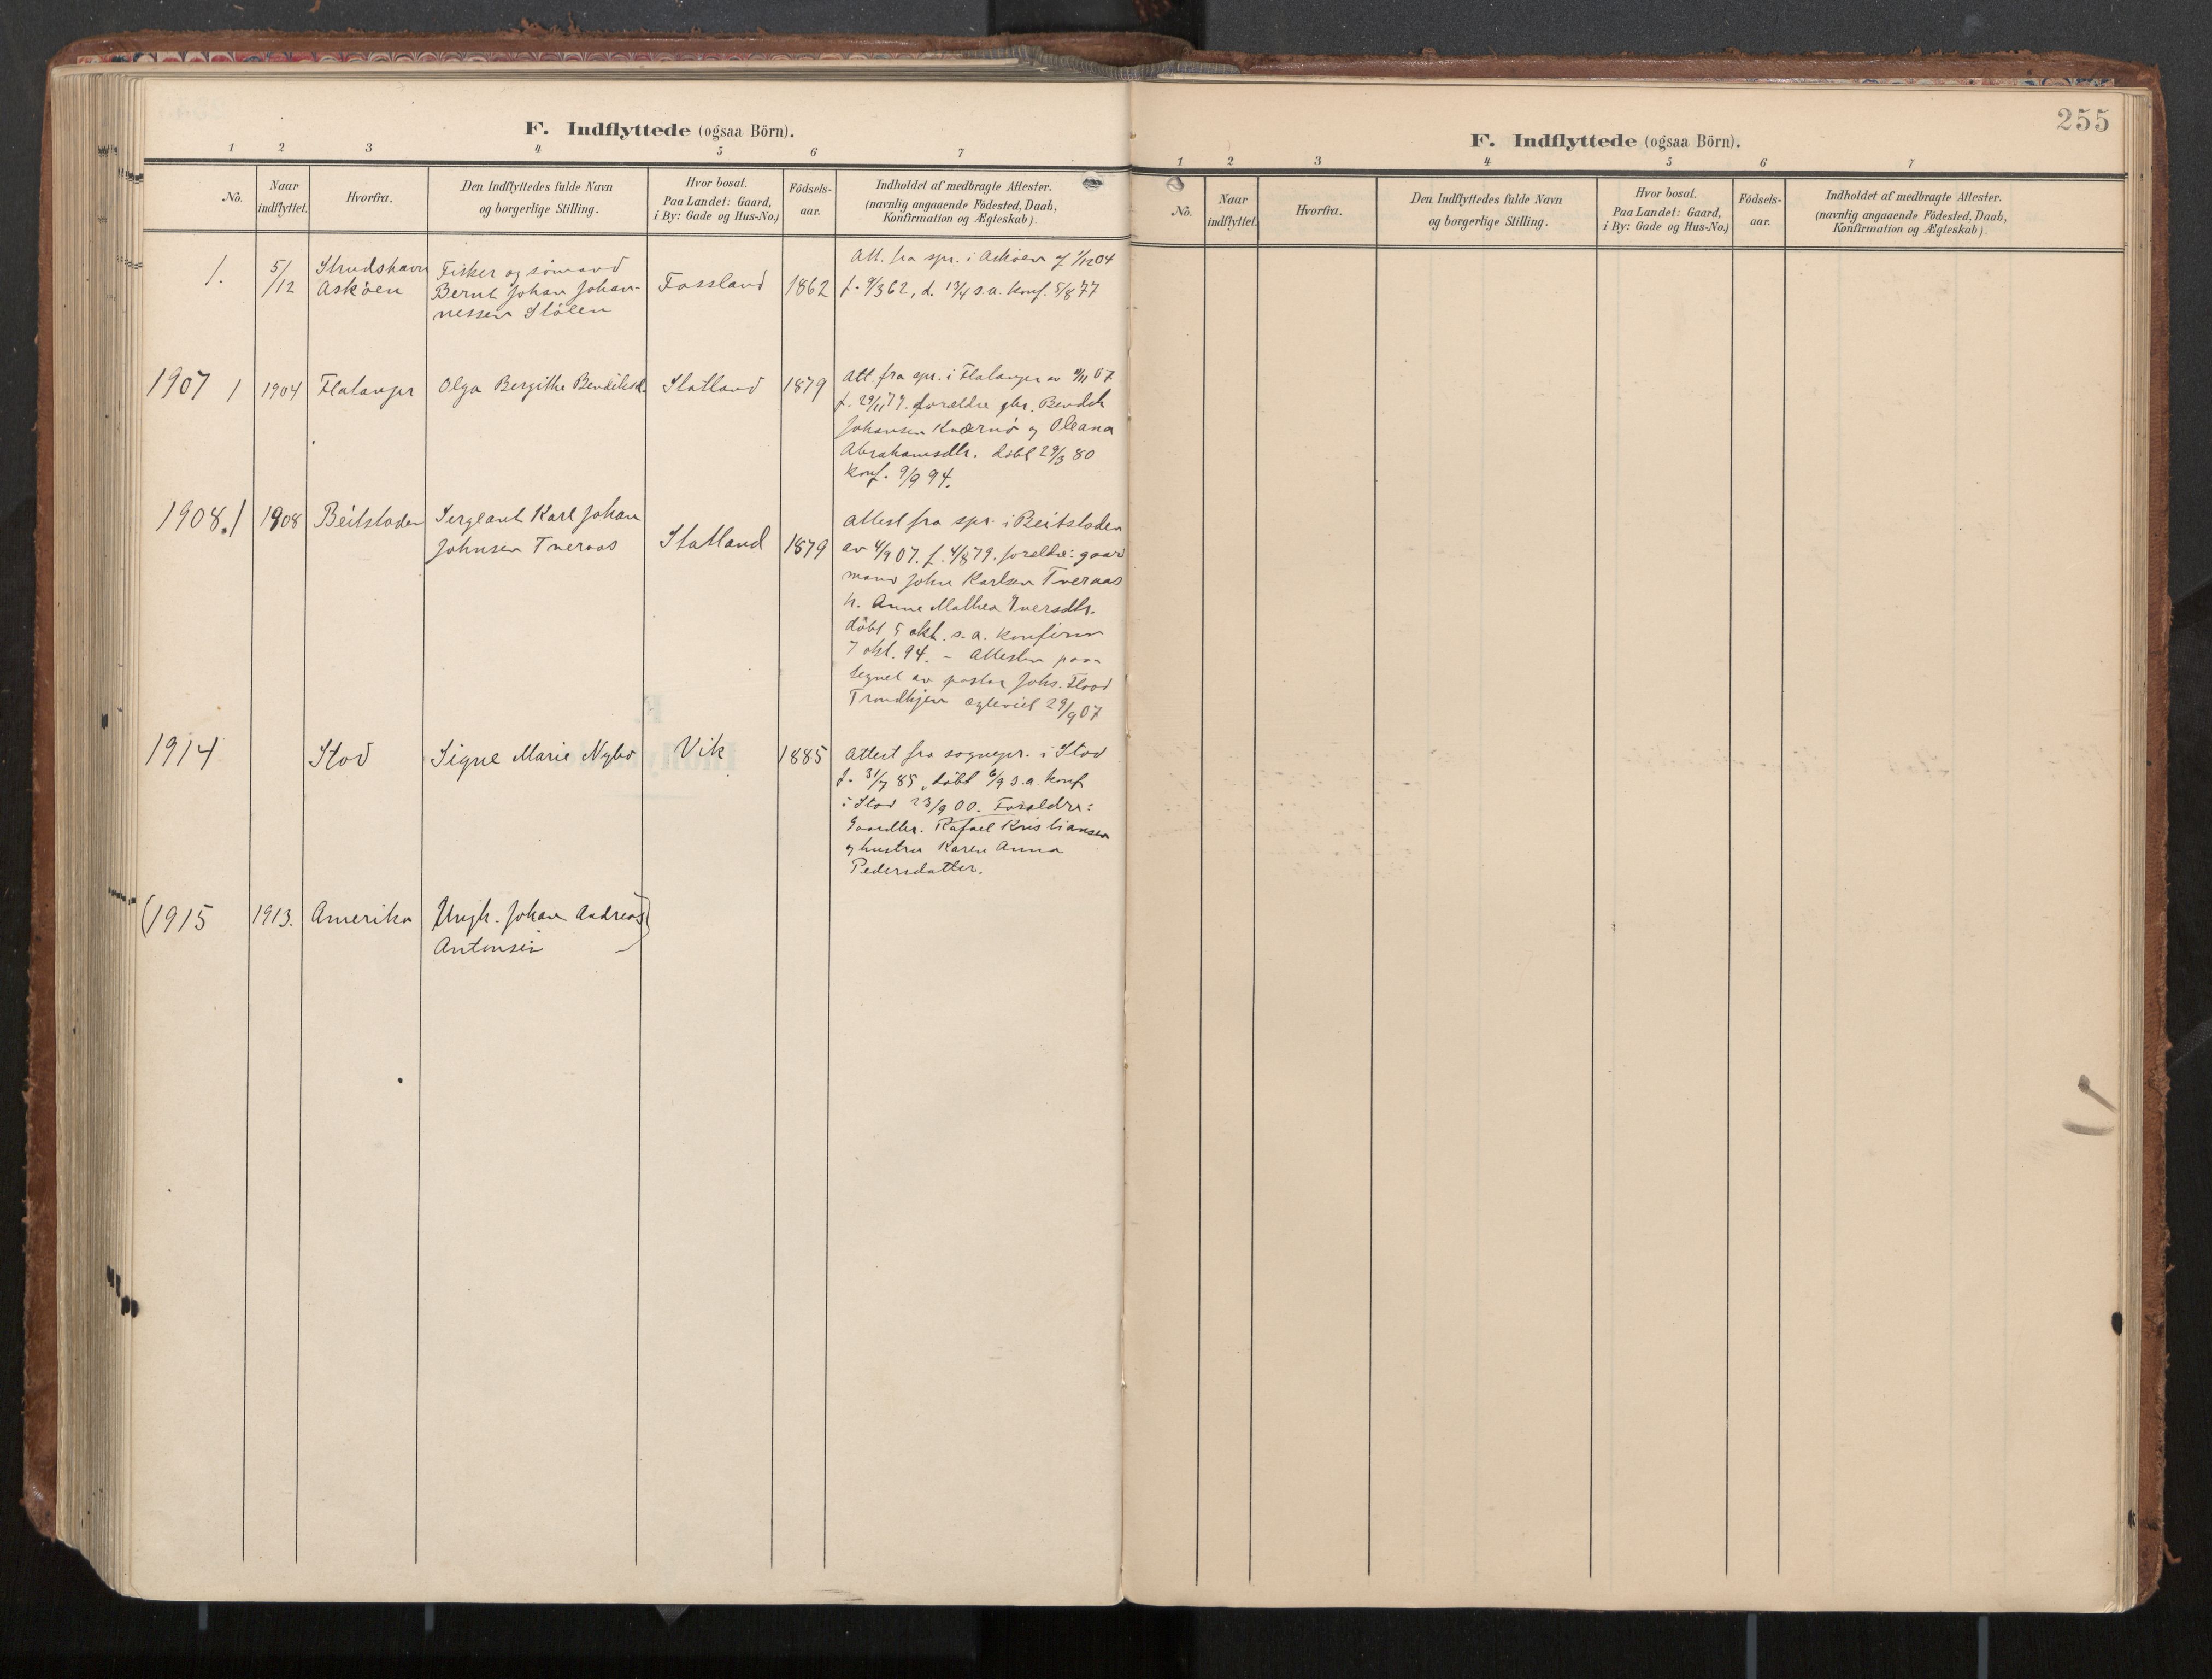 F. Indflyttede (ogsaa Börn).
1 2 3 4 5 6 7
No. Naar indflyttet. Hvorfra. Den Indflyttedes fulde Navn og borgerlige Stilling. Hvor bosat. Paa Landet: Gaard, i By: Gade og Hus-No.) Födsels-aar. Indholdet af medbragte Attester. (navnlig angaaende Födested, Daab, Konfirmation og Ægteskab).
1. 5/12 Strudshavn
Askøen
Fisker og sömand
Bernt Johan Johan-
nessen Stölen
Fossland
1862
Att. fra spr. i Askøen 1/12 04
f. 9/3 62, d. 13/4 s.a. konf. 5/8 77
1907 1 1904 Flatanger Olga Bergithe Bendiksd. Statland 1879
Att. fra spr. i Flatanger av 07
f. 29/11 79. forældre gbr. Bendik
Johansen Kværnö og Oleana
Abrahamsdtr. döbt 29/3 80
konf. 9/9 94.
1908. 1 1908 Beitstaden Sergeant Karl Johan
Johnsen Tveraas
Statland 1879
Attest fra spr. i Beitstaden
av 4/9 07. f. 4/8 79. foreldre: gaard
mand John Karlsen Tveraas
h. Anne Mathea Iversdtr.
döbt 5 okt. s.a. konfirm
7 okt. 94. - Attesten paa-
tegnet av pastor Johs. Flood
Trondhjem egteviet 29/9 07
1914 Stod Signe Marie Nybo Vik 1885
Attest fra sognepr. i Stod
f. 31/7 85, döbt 6/9 s.a. konf
i Stod 23/9 00. Forældre:
Gaardbr. Rafael Kristiansen
og hustru Karen Anna
Pedersdatter.
(1915 1913. Amerika Ungk. Johan Andreas
Antonsen)
255
F. Indflyttede (ogsaa Börn).
1 2 3 4 5 6 7
No. Naar indflyttet. Hvorfra. Den Indflyttedes fulde Navn og borgerlige Stilling. Hvor bosat. Paa Landet: Gaard, i By: Gade og Hus-No.) Födsels-aar. Indholdet af medbragte Attester. (navnlig angaaende Födested, Daab, Konfirmation og Ægteskab).